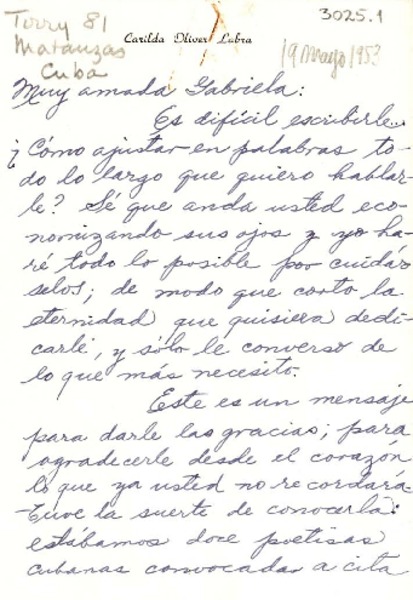 Tirry 81
Matanzas
Cuba
Carilda Oliver Labra
3025.1
19 Mayo 1953
Muy amada Gabriela:
Es difícil escribirle...
¿Cómo ajustar en palabras to-
do lo largo que quiero hablar-
le? Sé que anda usted eco-
nomizando sus ojos y yo ha-
ré todo lo posible por cuidár-
selos; de modo que corto la
eternidad que quisiera dedi-
carle, y sólo le converso de
lo que más necesito.
Este es un mensaje
para darle las gracias; para
agradecerle desde el corazón
lo que ya usted no recordará.
Tuve la suerte de conocerla:
estábamos doce poetisas
cubanas convocadas a cita